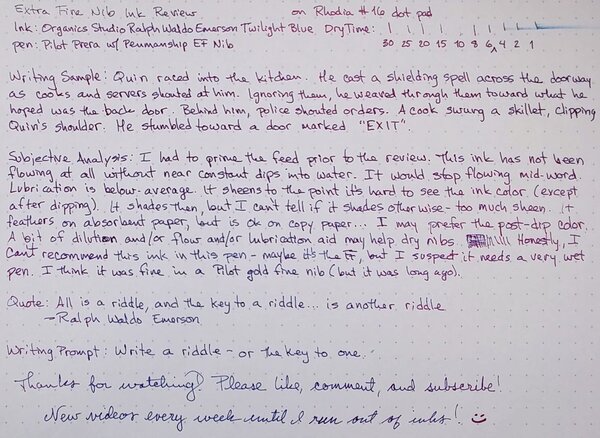 Extra Fine Nib Ink Review on Rhodia #16 dot pad
Ink: Organics Studio Ralph Waldo Emerson Twilight Blue Dry Time:
pen: Pilot Prera w/ Penmanship EF Nib 30 25 20 15 10 8 6 4 2 1
Writing Sample: Quin raced into the kitchen. He cast a shielding spell across the doorway
as cooks and servers shouted at him. Ignoring them, he weaved through them toward what he
hoped was the back door. Behind him, police shouted orders. A cook swung a skillet, clipping
Quin's shoulder. He stumbled toward a door marked "EXIT".
Subjective Analysis: I had to prime the feed prior to the review. This ink has not been
flowing at all without near constant dips into water. It would stop flowing mid-word.
Lubrication is below-average. It sheens to the point it's hard to see the ink color (except
after dipping). It shades then, but I can't tell if it shades otherwise - too much sheen. It
feathers on absorbent paper, but is ok on copy paper... I may prefer the post-dip color.
A bit of dilution and/or flow and/or lubrication aid may help dry nibs. Honestly, I
can't recommend this ink in this pen - maybe it's the EF, but I suspect it needs a very wet
pen. I think it was fine in a Pilot gold fine nib (but it was long ago).
Quote: All is a riddle, and the key to a riddle... is another riddle
- Ralph Waldo Emerson
Writing Prompt: Write a riddle - or the key to one.
Thanks for watching! Please like, comment, and subscribe!
New videos every week until I run out of inks!